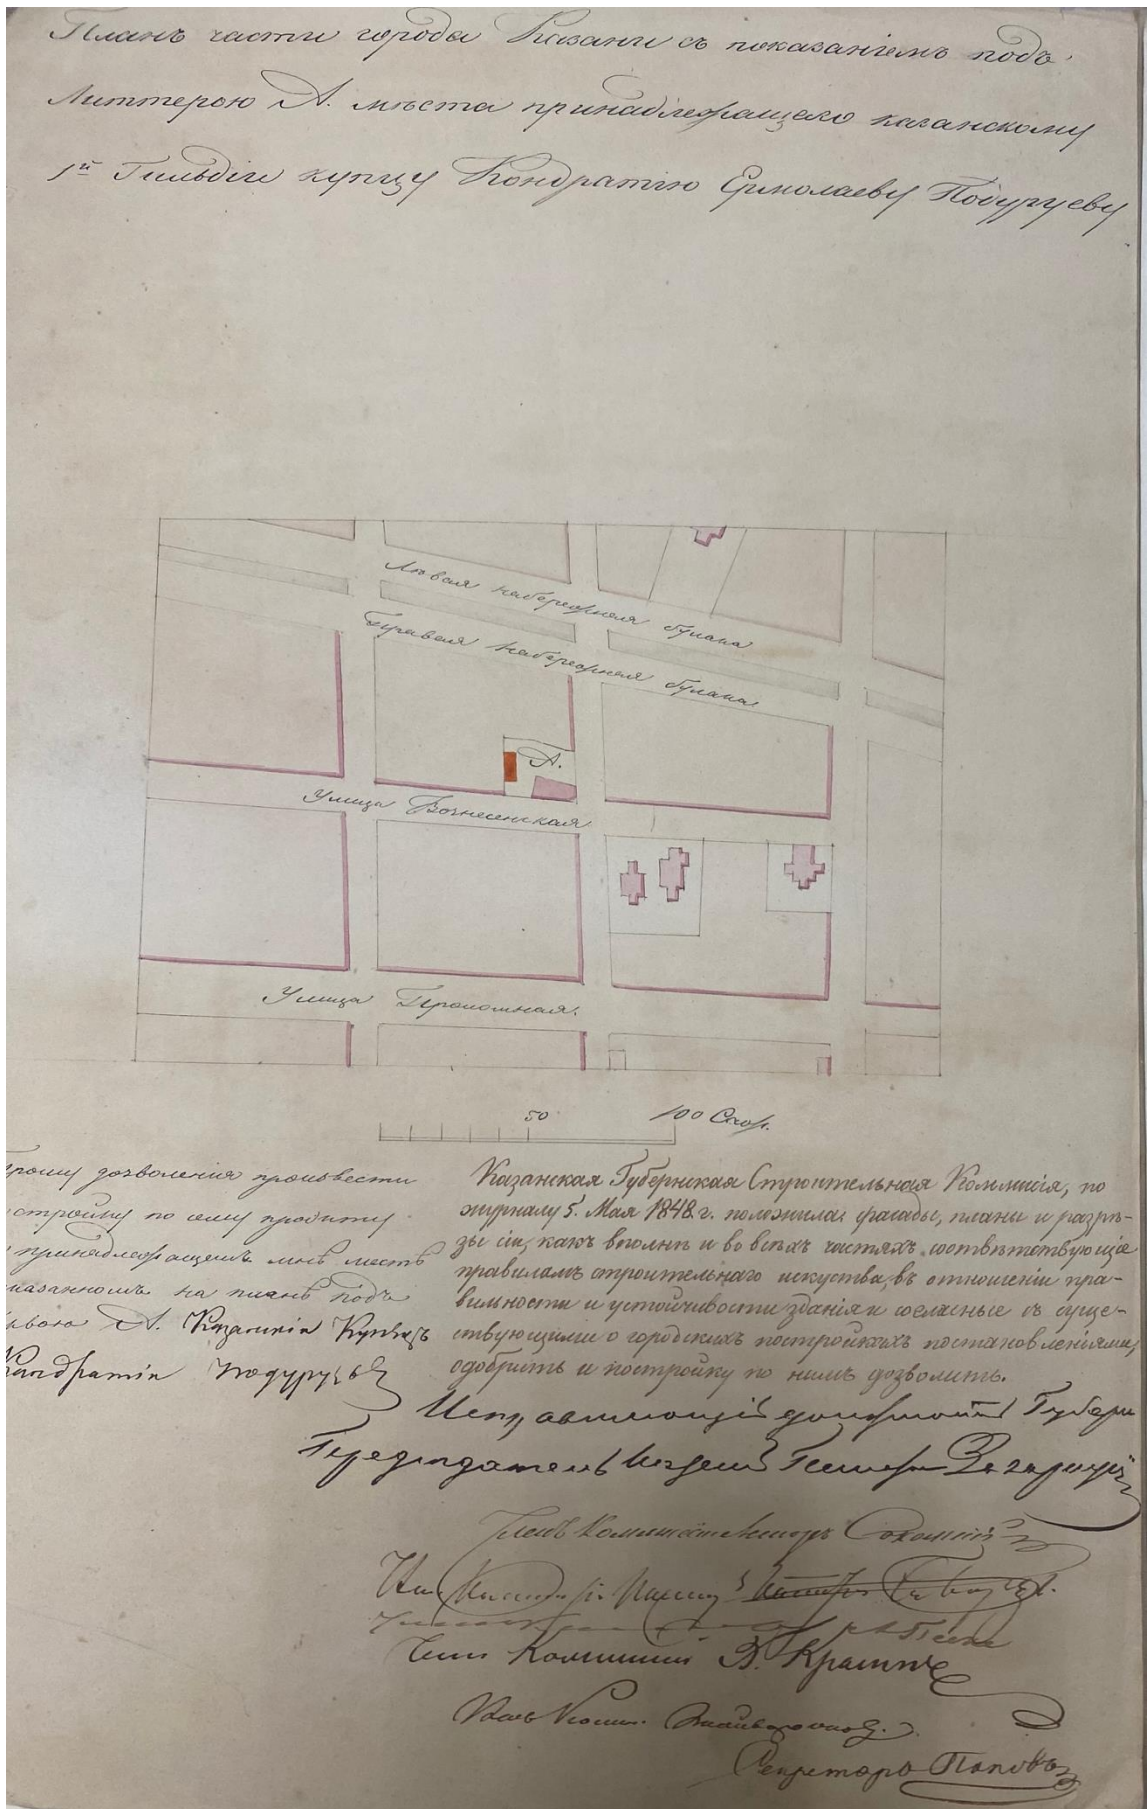 Планъ части города Казани съ показаніемъ подъ
Литтерою А. мѣста принадлежащаго казанскому
1й Гильдіи купцу Кондратію Ермолаеву Подуруеву
Лѣвая набережная булака
Правая набережная булака
А.
Улица Вознесенская
Улица Проломная.
50 100 Саж.
Прошу дозволенія произвести
стройку по сему проэкту
принадлежащемъ мнѣ мѣстѣ
казанномъ на планѣ подъ
А. Казанскій Купецъ
Кандратій Подуруевъ
Казанская Губернская Строительная Коммисія, по
журналу 5. Мая 1848. г. положила: фасады, планы и разрѣ-
зы сіи, какъ вполнѣ и во всѣхъ частяхъ соотвѣтствующіе
правиламъ строительнаго искуства, въ отношеніи пра-
вильности и устойчивости зданія и согласные съ суще-
ствующими о городскихъ постройкахъ постановленіями,
одобрить и постройку по нимъ дозволить.
Исправляющій должность Губерн
Предсѣдатель
Членъ Коммисіи
Членъ Коммисіи В.
Секретарь Поповъ